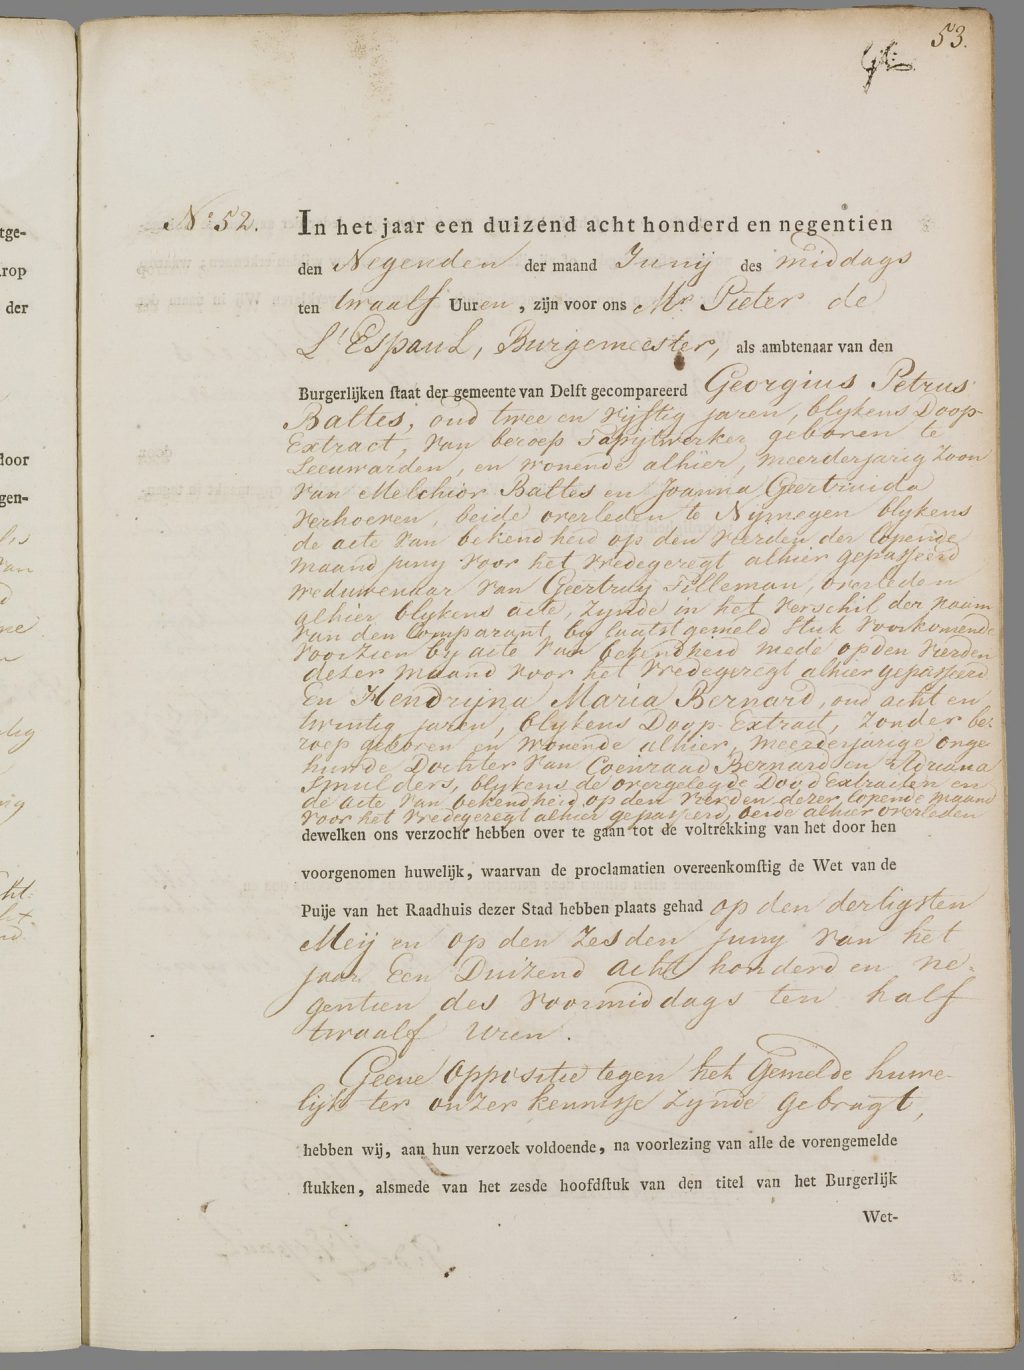 53.
tge-
rop
der
door
gen-
No. 52.
In het jaar een duizend acht honderd en negentien
den Negenden der maand Junij des middags
ten twaalf Uuren, zijn voor ons Mr. Pieter de
L'Espaul, Burgemeester, als ambtenaar van den
Burgerlijken staat der gemeente van Delft gecompareerd Georgius Petrus
Baltes, oud twee en vijftig jaren, blykens Doop-
Extract, van beroep Tapijtwerker, geboren te
Leeuwarden, en wonende alhier, meerderjarig Zoon
van Melchior Baltes en Joanna Geertruida
Verhoeven, beide overleden te Nijmegen blykens
de acte van bekendheid op den vierden der lopende
maand juny voor het vredegeregt alhier gepasseerd
weduwenaar van Geertruy Tilleman, overleden
alhier blykens acte, zynde in het verschil der naam
van den Comparant by laatstgemeld stuk voorkomende
voorzien by acte van bekendheid mede op den vierden
dezer maand voor het vredegeregt alhier gepasseerd
En Hendrijna Maria Bernard, oud acht en
twintig jaren, blykens Doop-Extract, zonder be-
roep geboren en wonende alhier, meerderjarige onge-
huwde Dochter van Coenraad Bernard en Adriana
Smulders, blykens de overgelegde Dood Extracten en
de acte van bekendheid op den vierden dezer lopende maand
voor het vredegeregt alhier gepasseerd, beide alhier overleden
dewelken ons verzocht hebben over te gaan tot de voltrekking van het door hen
voorgenomen huwelijk, waarvan de proclamatien overeenkomstig de Wet van de
Puije van het Raadhuis dezer Stad hebben plaats gehad op den dertigsten
Meij en op den zesden juny van het
jaar Een Duizend acht honderd en ne-
gentien des voormiddags ten half
twaalf uren.
Geene oppositie tegen het gemelde huwe-
lijk ter onzer kennisse zynde gebragt,
hebben wij, aan hun verzoek voldoende, na voorlezing van alle de vorengemelde
stukken, alsmede van het zesde hoofdstuk van den titel van het Burgerlijk
Wet-